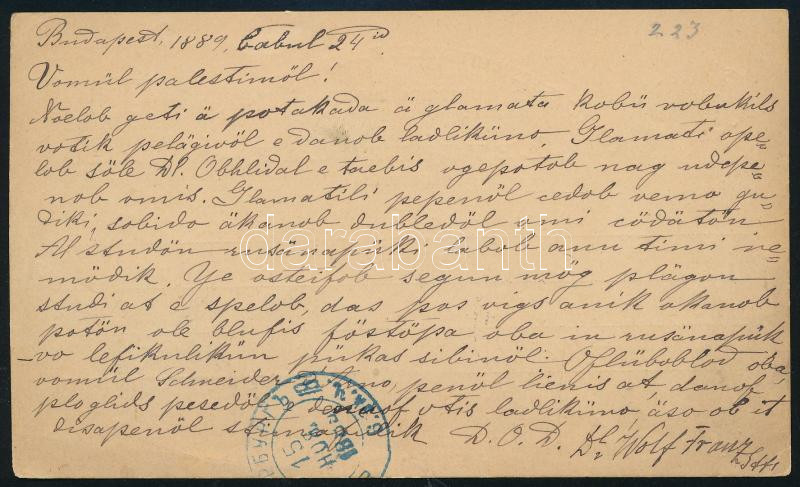 223
Budapest, 1889, babul 24 id
Vomül palestimöl!
Noelob geti ä potakada ä glamata kobü vobuküls
votik pelägivöl e danob ladliküno. Glamati spe=
lob söle Dr. Obhlidal e taebis ogepotob nag udepe=
nob omis. Glamatili pepenöl cedob vemo gu=
diki, sobido äkanob dubledöl omi cödätön
Al studön rusänapüki labob anu timi ne=
mödik. Ye osteifob segun mög plägön
studi at e spelob, das pos vigs anik okanob
potön ole blufis föstöpa, oba in rusänapük
vo lefikulikün pükas sibinöl. Oflüboblod oba,
vomül Schneider penöl lienis at, danof
ploglids pesedöl denof otis ladliküno, äso ob it
disapenöl stimafulik D.O.D. Dr. Wolf Franz
darabanth